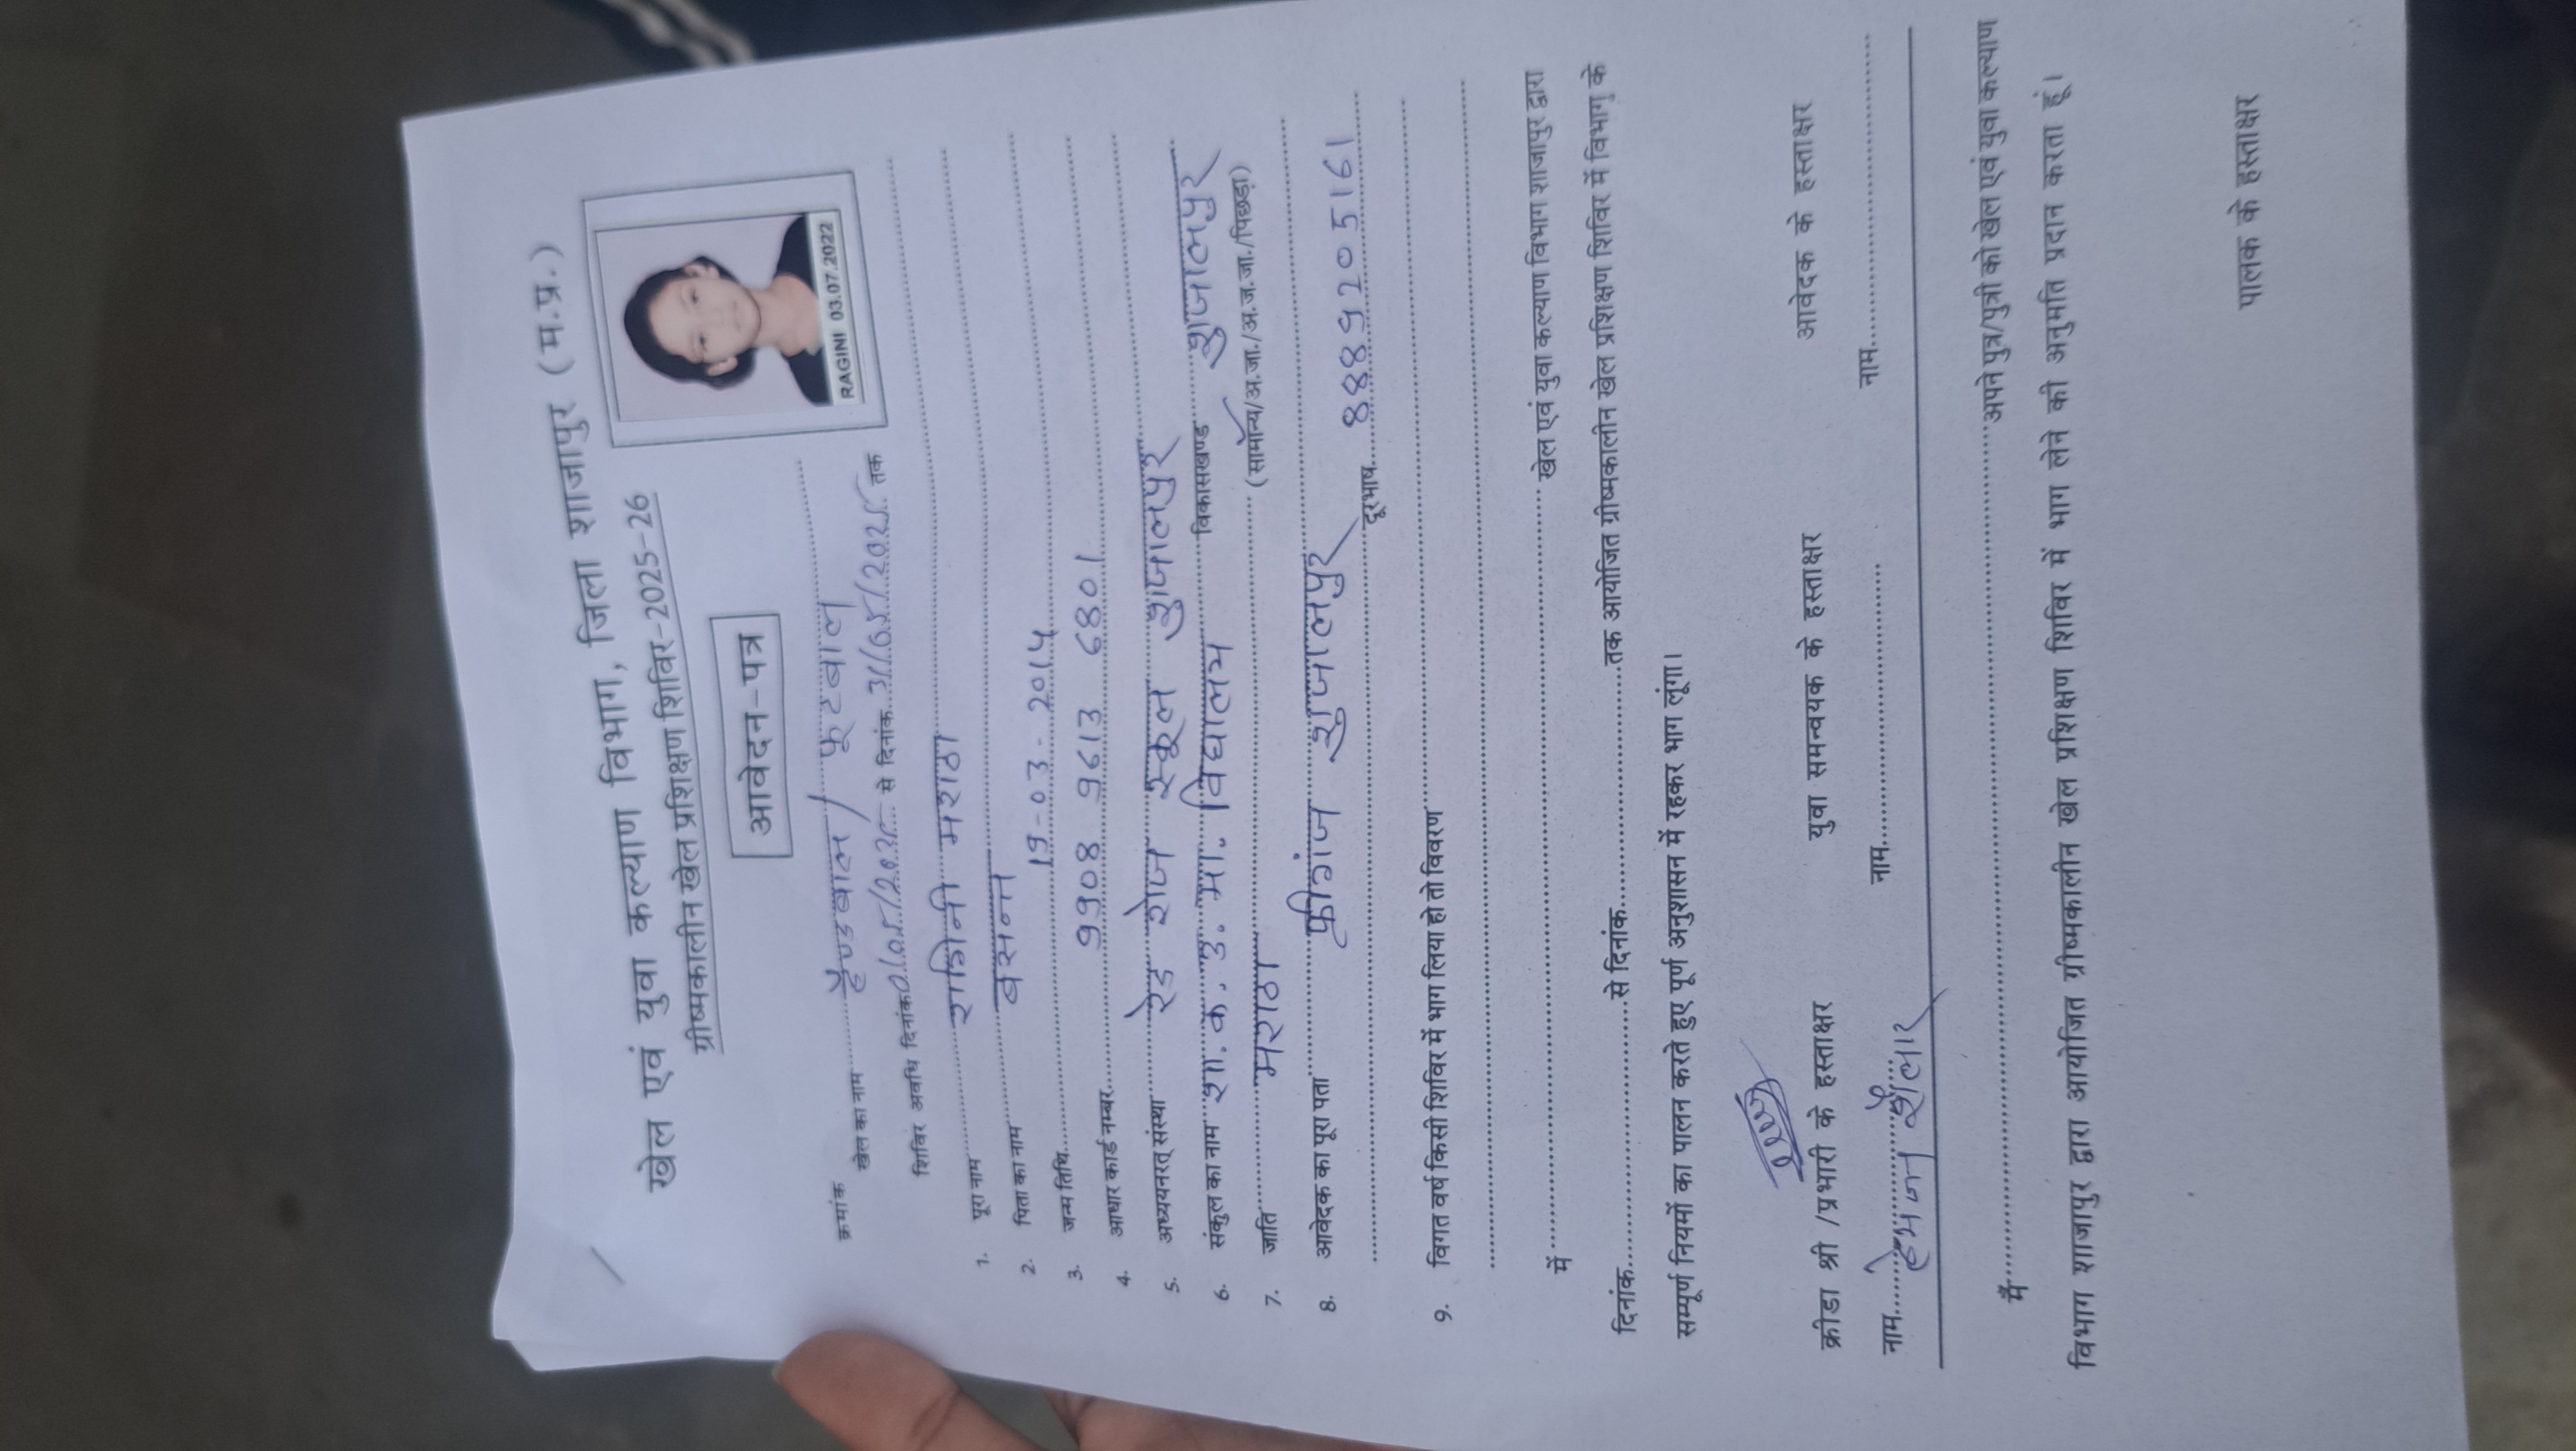 खेल एवं युवा कल्याण विभाग, जिला शाजापुर (म.प्र.)
ग्रीष्मकालीन खेल प्रशिक्षण शिविर-2025-26
आवेदन-पत्र
RAGINI 03.07.2022
क्रमांक
खेल का नाम हैण्डबाल / फूटबाल
शिविर अवधि दिनांक से दिनांक 31/05/2025 तक
1. पूरा नाम रागिनी मराठा
2. पिता का नाम वसन्त
3. जन्म तिथि 19-03-2014
4. आधार कार्ड नम्बर 9908 9613 6801
5. अध्ययनरत् संस्था रेड रोज स्कूल शुजालपुर
6. संकुल का नाम शा. क. उ. मा. विद्यालय विकासखण्ड शुजालपुर
7. जाति मराठा (सामान्य/अ.जा./अ.ज.जा./पिछड़ा)
8. आवेदक का पूरा पता फ्रीगंज शुजालपुर
दूरभाष 8889205161
9. विगत वर्ष किसी शिविर में भाग लिया हो तो विवरण
में खेल एवं युवा कल्याण विभाग शाजापुर द्वारा
दिनांक से दिनांक तक आयोजित ग्रीष्मकालीन खेल प्रशिक्षण शिविर में विभाग के
सम्पूर्ण नियमों का पालन करते हुए पूर्ण अनुशासन में रहकर भाग लूंगा।
क्रीडा श्री /प्रभारी के हस्ताक्षर युवा समन्वयक के हस्ताक्षर आवेदक के हस्ताक्षर
नाम नाम नाम
मैं अपने पुत्र/पुत्री को खेल एवं युवा कल्याण
विभाग शाजापुर द्वारा आयोजित ग्रीष्मकालीन खेल प्रशिक्षण शिविर में भाग लेने की अनुमति प्रदान करता हूं।
पालक के हस्ताक्षर